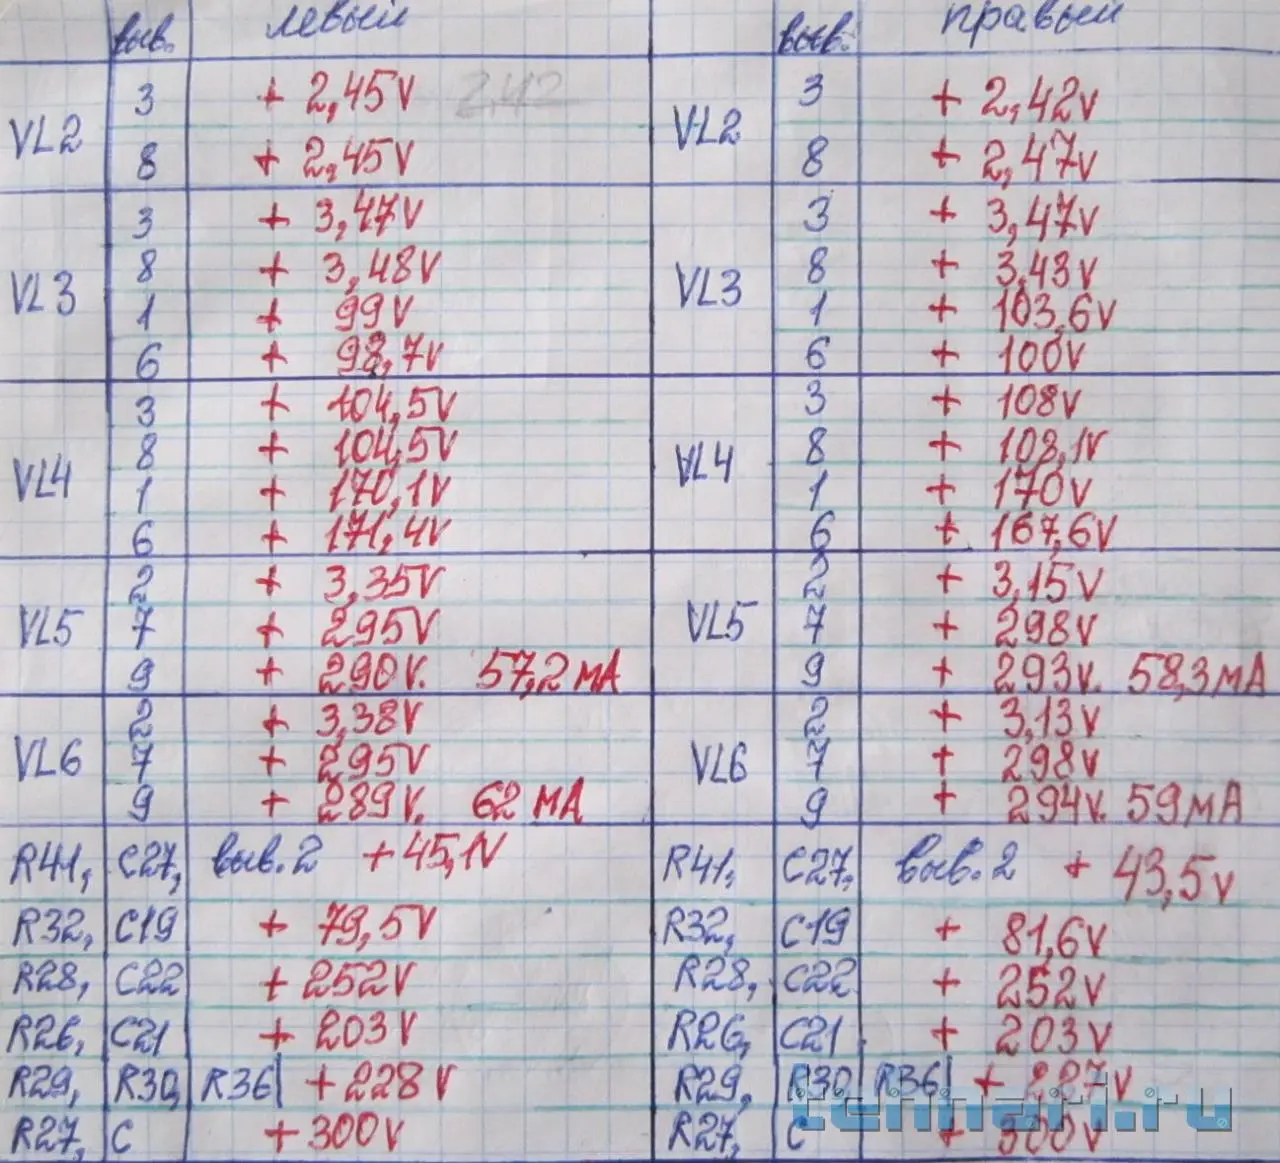 выв. левый выв. правый
VL2 3 + 2,45V 2,42 VL2 3 + 2,42V
8 + 2,45V 8 + 2,47V
VL3 3 + 3,47V VL3 3 + 3,47V
8 + 3,48V 8 + 3,43V
1 + 99V 1 + 103,6V
6 + 98,7V 6 + 100V
VL4 3 + 104,5V VL4 3 + 108V
8 + 104,5V 8 + 108,1V
1 + 170,1V 1 + 170V
6 + 171,4V 6 + 167,6V
VL5 2 + 3,35V VL5 2 + 3,15V
7 + 295V 7 + 298V
9 + 290V. 57,2 мА 9 + 293V. 58,3 мА
VL6 2 + 3,38V VL6 2 + 3,13V
7 + 295V 7 + 298V
9 + 289V. 62 мА 9 + 294V. 59 мА
R41, C27, выв. 2 + 45,1V R41, C27, выв. 2 + 43,5V
R32, C19 + 79,5V R32, C19 + 81,6V
R28, C22 + 252V R28, C22 + 252V
R26, C21 + 203V R26, C21 + 203V
R29, R30, R36 + 228V R29, R30 R36 + 227V
R27, C + 300V R27, C + 300V
tehnari.ru